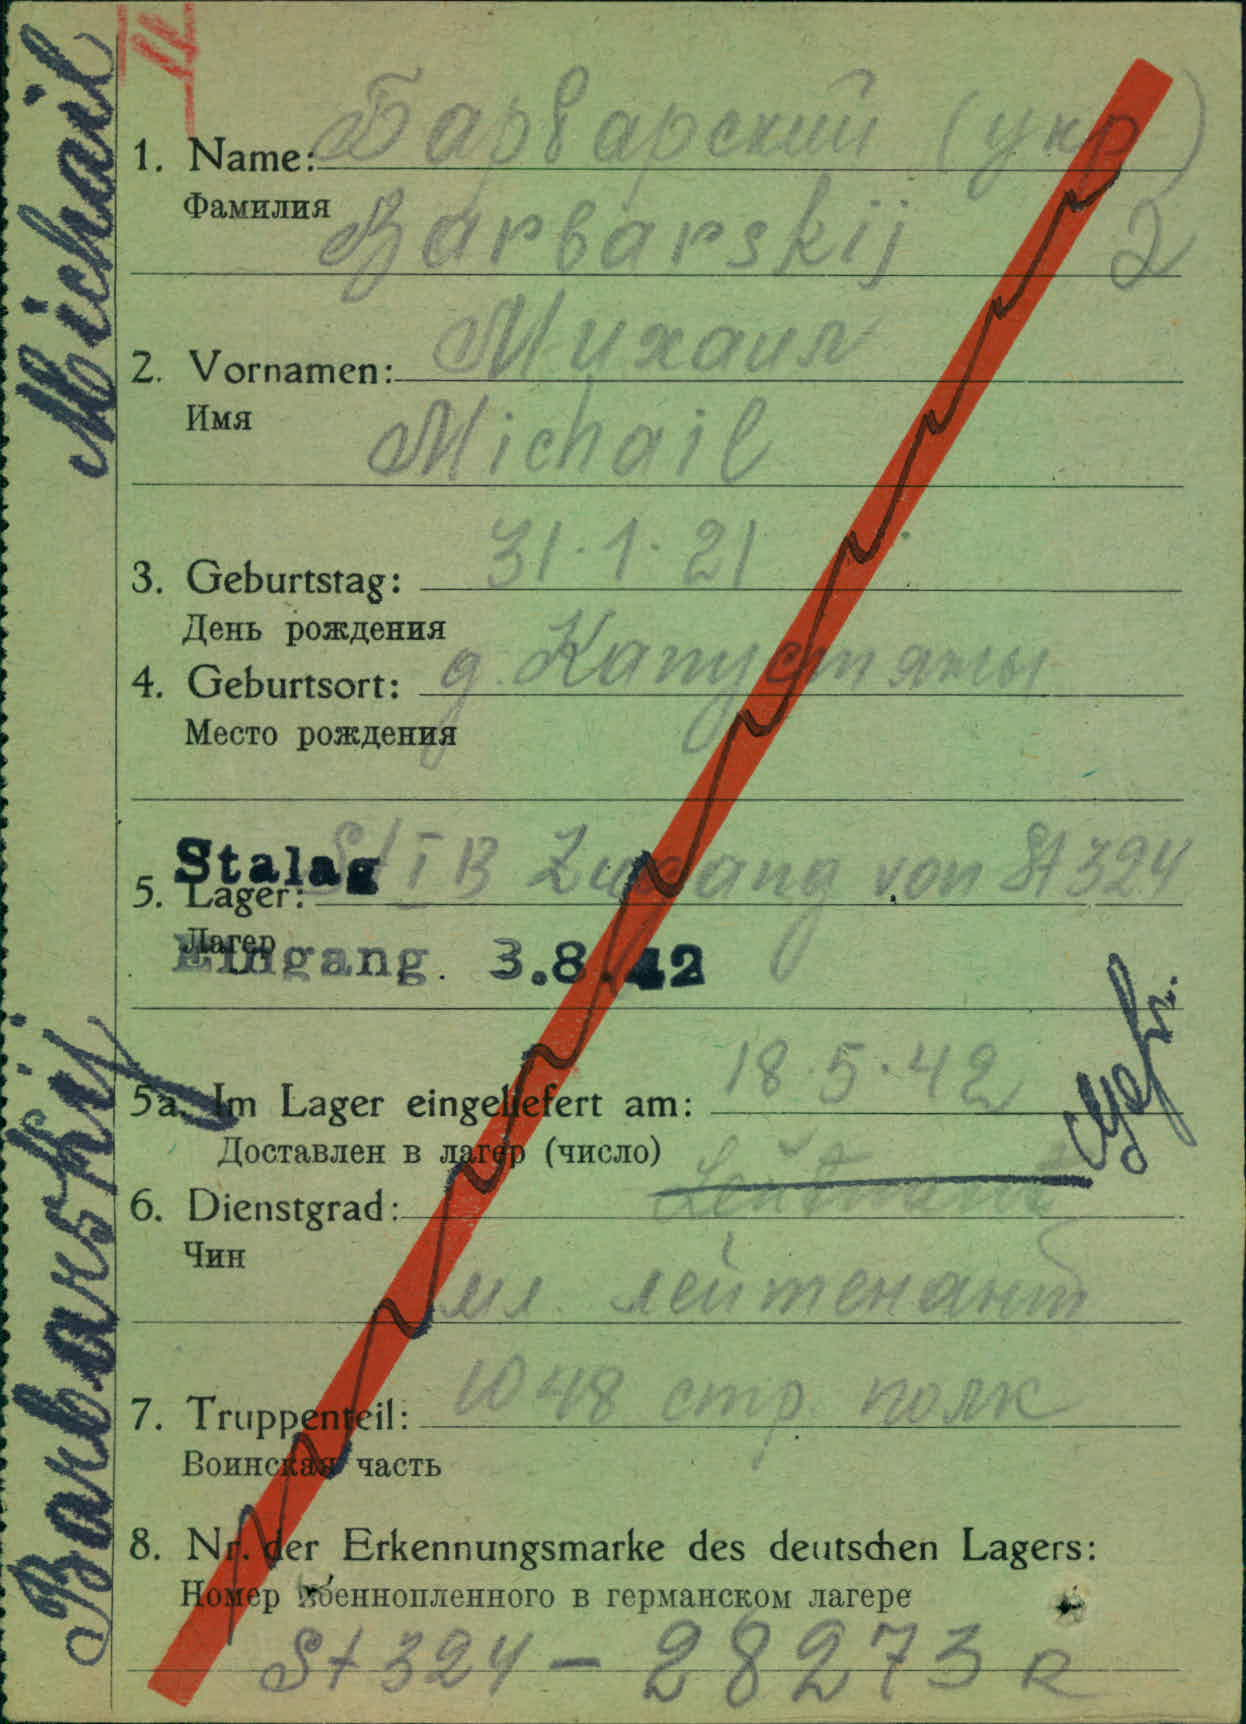 Barbarskij Michail
1. Name: Барбарский (укр)
Фамилия
Barbarskij 2
2. Vornamen: Михаил
Имя
Michail
3. Geburtstag: 31.1.21
День рождения
4. Geburtsort: д. Капустяны
Место рождения
Stalag St I B Zugang von St 324
5. Lager:
Лагер
Eingang. 3.8.42
5a. Im Lager eingeliefert am: 18.5.42
Доставлен в лагер (число)
6. Dienstgrad: Leutnant
Чин
мл. лейтенант
7. Truppenteil: 1048 стр. полк
Воинская часть
8. Nr. der Erkennungsmarke des deutschen Lagers:
Номер военнопленного в германском лагере
St 324 - 28273 R